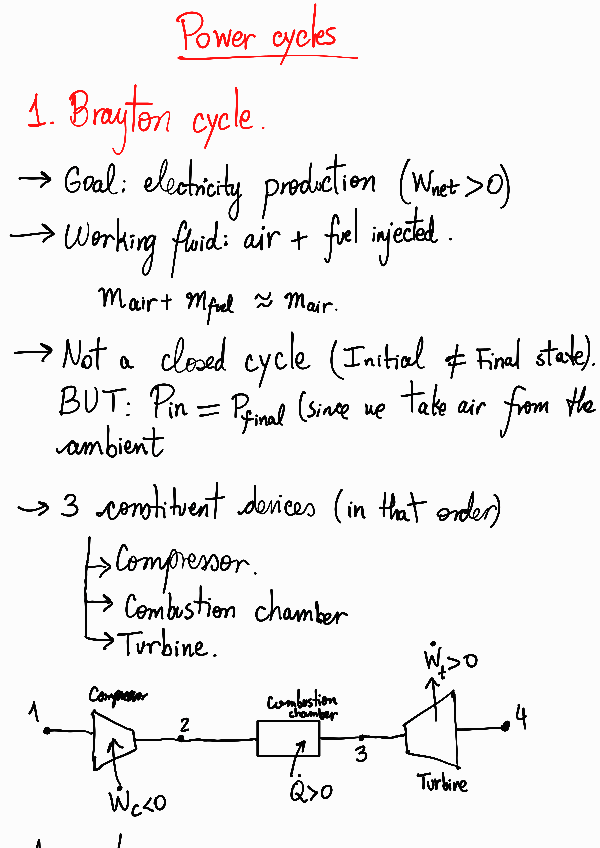 Power cycles
1. Brayton cycle.
→ Goal: electricity production (Wnet >0)
→ Working fluid: air + fuel injected.
mair + mfuel ≈ mair.
→ Not a closed cycle (Initial ≠ Final state).
BUT: Pin = Pfinal (since we take air from the
ambient
→ 3 constituent devices (in that order)
→ Compressor.
→ Combustion chamber
→ Turbine.
Ẇt >0
Compressor
Combustion
chamber
1
2
3
4
Turbine
Ẇc <0
Q̇>0